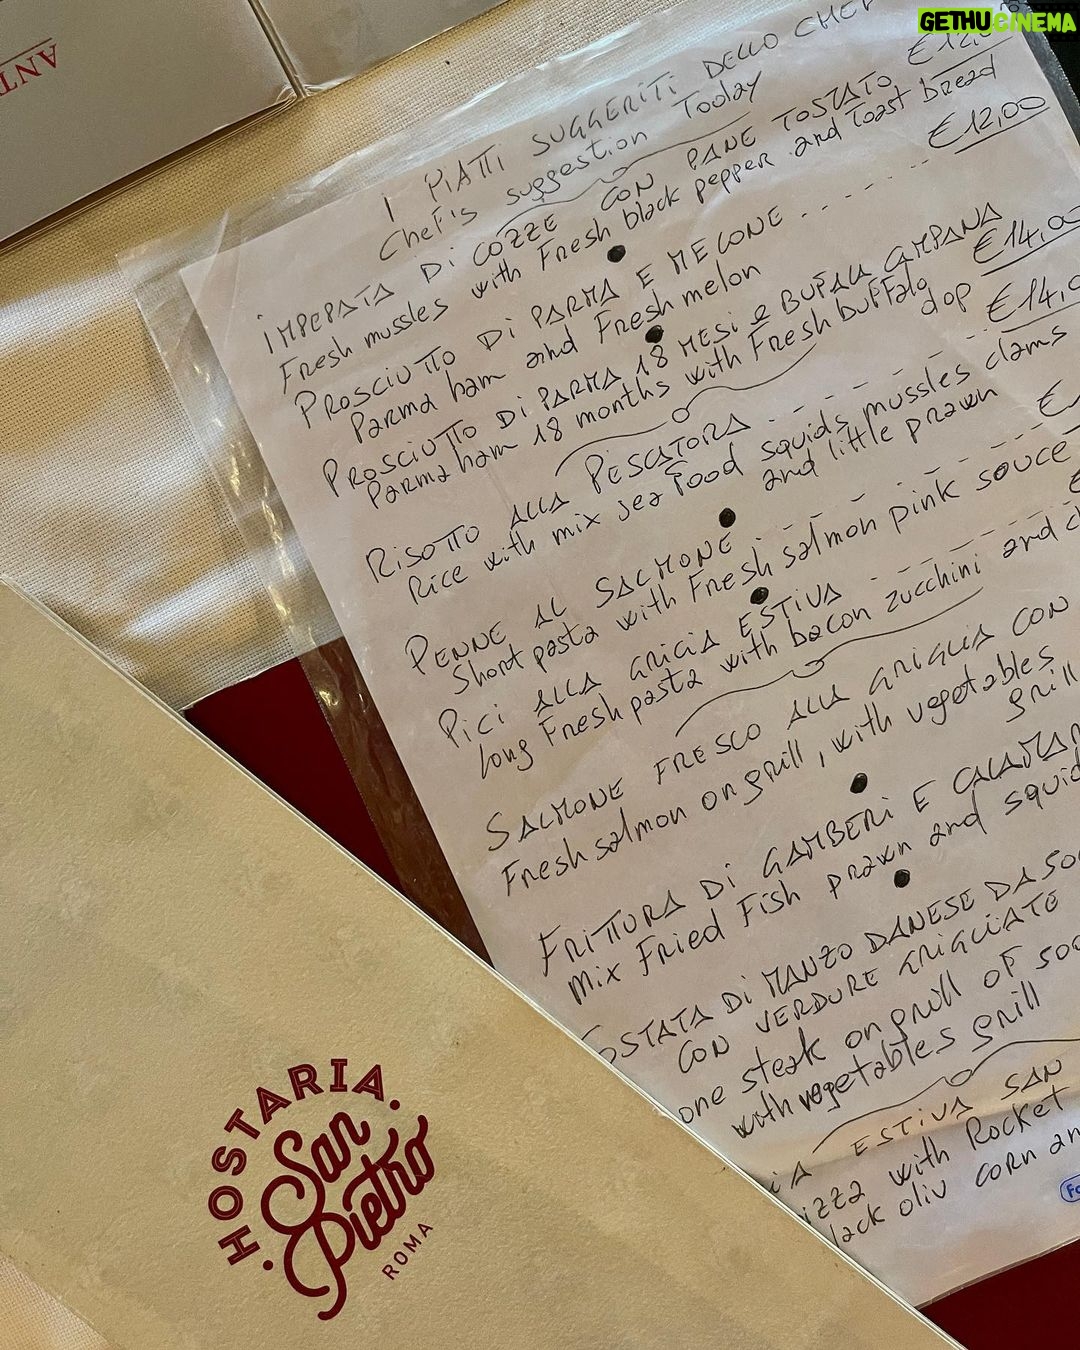 GETHUCINEMA
ANT
I PIATTI SUGGERITI DELLO CHEF
Chef's suggestion Today
IMPEPATA DI COZZE CON PANE TOSTATO €12,00
Fresh mussles with Fresh black pepper and toast bread
PROSCIUTTO DI PARMA E MELONE - - - - - - - €12,00
Parma ham and Fresh melon
PROSCIUTTO DI PARMA 18 MESI e BUFALA CAMPANA €14,00
Parma ham 18 months with Fresh buffalo dop
RISOTTO ALLA PESCATORA - - - - - - €14,0
Rice with mix sea food squids mussles clams
and little prawn
PENNE AL SALMONE - - - - - - - €
Short pasta with Fresh salmon pink souce
PICI ALLA GRICIA ESTIVA - - - - - - €
long Fresh pasta with bacon zucchini and c
SALMONE FRESCO ALLA GRIGLIA CON
Fresh salmon on grill, with vegetables
grill
FRITTURA DI GAMBERI E CALAMAR
Mix Fried Fish prawn and squid
OSTATA DI MANZO DANESE DA 500
CON VERDURE GRIGLIATE
one steak on grill of 500
with vegetables grill
IA ESTIVA SAN
izza with Rocket
lack oliv corn an
HOSTARIA
San
Pietro
ROMA